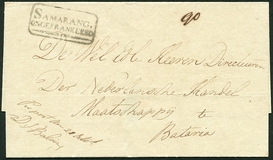 SAMARANG.
ONGEFRANKEERD
90
De Wel Ede Heeren Directeuren
Der Nederlandsche Handel
Maatschappij
te
Batavia